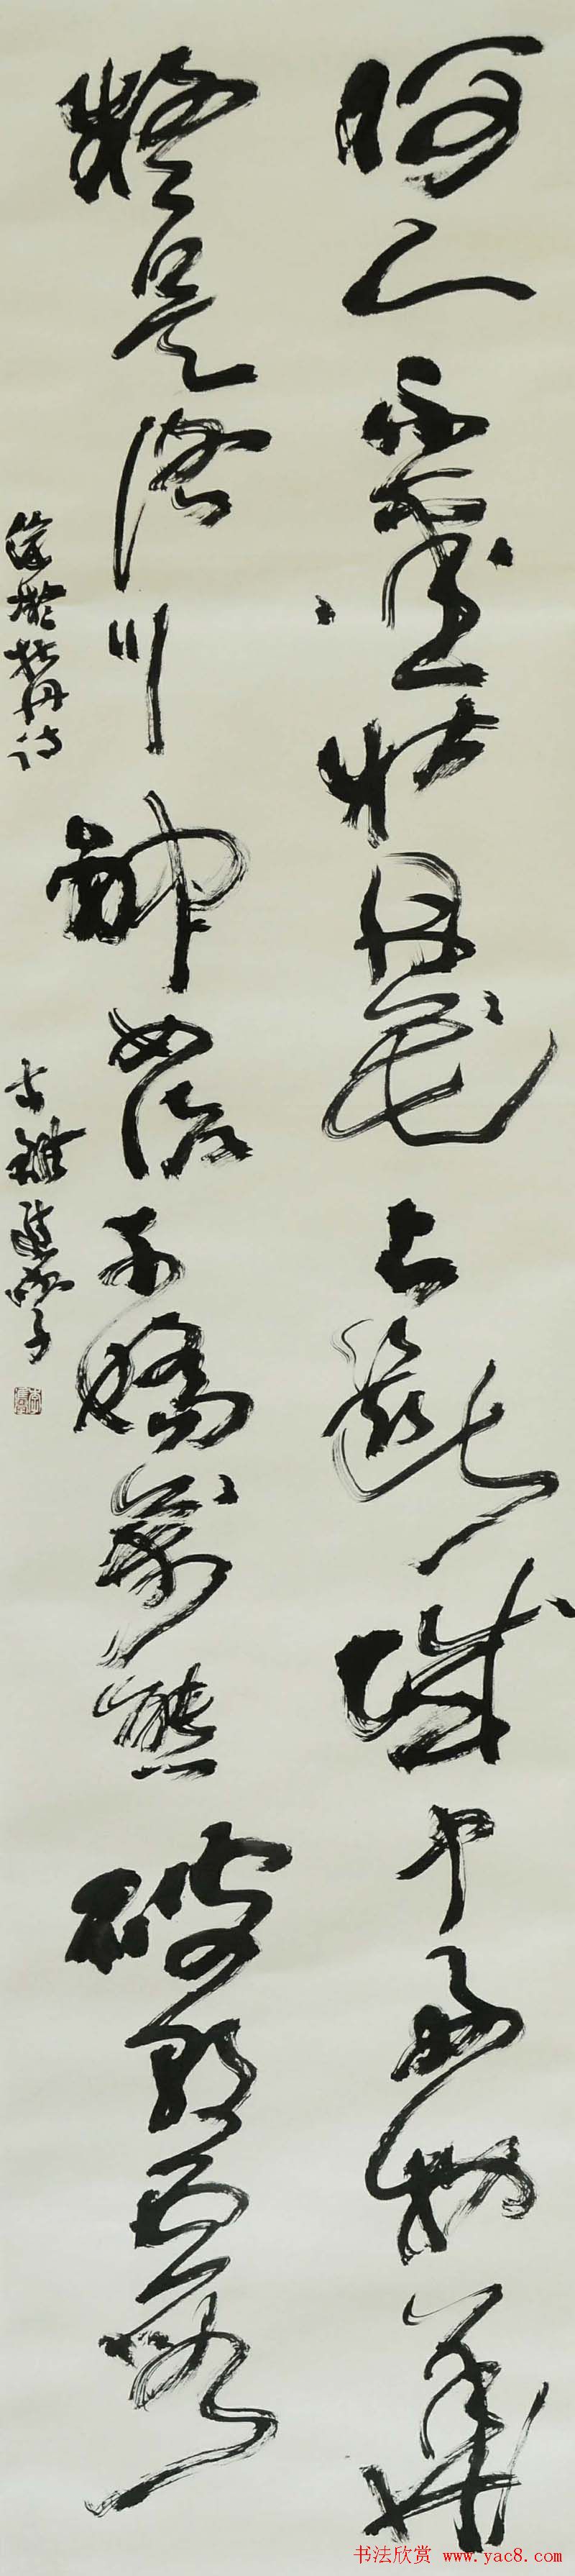 何人不爱牡丹花占断城中好物华
疑是洛川神女作千娇万态破朝霞
徐凝牡丹诗
书法欣赏 www.yac8.com